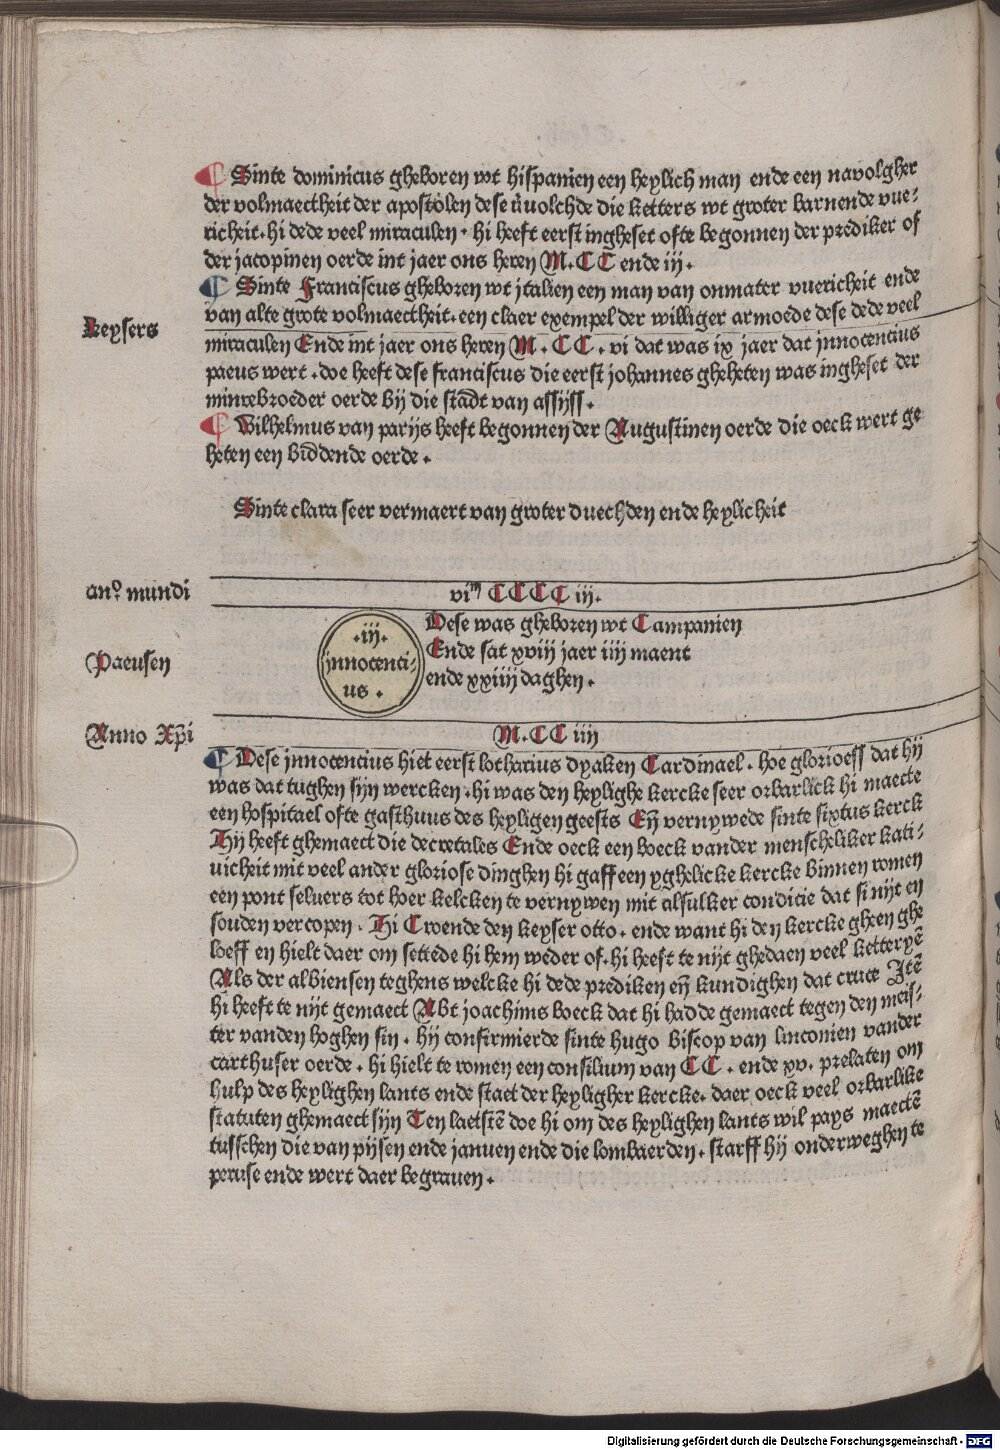 ¶ Sinte dominicus gheboren wt hispanien een heylich man ende een navolgher
der volmaectheit der apostolen dese v̄uolchde die ketters wt groter barnende vue-
richeit. hi dede veel miraculen. hi heeft eerst ingheset ofte begonnen der prediker of
der jacopinen oerde int jaer ons heren M.CC ende iij.
¶ Sinte Franciscus gheboren wt jtalien een man van onmater vuericheit ende
van alte grote volmaectheit. een claer exempel der williger armoede dese dede veel
keysers
miraculen Ende int jaer ons heren M.CC.vi dat was ix jaer dat jnnocencius
paeus wert. doe heeft dese franciscus die eerst johannes gheheten was ingheset der
minrebroeder oerde bij die stadt van assijs.
¶ Wilhelmus van parijs heeft begonnen der Augustinen oerde die oeck wert ge
heten een biddende oerde.
Sinte clara seer vermaert van groter duechden ende heylicheit
anº mundi
viᵐ CCCC iij.
Paeusen
.iij.
jnnocenci-
us.
Dese was gheboren wt Campanien
Ende sat xviij jaer iiij maent
ende xxiiij daghen.
Anno Xp̄i
M.CC iiij
¶ Dese jnnocencius hiet eerst lotharius dyaken Cardinael. hoe glorioess dat hij
was dat tughen sijn wercken. hi was den heylighe kercke seer orbarlick hi maecte
een hospitael ofte gasthuus des heyligen geests Eñ vernywede sinte sixtus kerck
Hij heeft ghemaect die decretales Ende oeck een boeck vander menscheliker kati-
uicheit mit veel ander gloriose dinghen hi gaff een yghelicke kercke binnen romen
een pont seluers tot hoer kelcken te vernywen mit alsulker condicie dat si nijt en
souden vercopen. Hi Croende den keyser otto. ende want hi den kercke gheen ghe
loeff en hielt daer om settede hi hem weder of. hi heeft te nijt ghedaen veel ketteryē
Als der albiensen teghens welcke hi dede prediken eñ kundighen dat cruce Jtē
hi heeft te nijt gemaect Abt joachims boeck dat hi hadde gemaect tegen den meis-
ter vanden hoghen sin. hij confirmierde sinte hugo biscop van linconien vander
carthuser oerde. hi hielt te romen een consilium van CC. ende xv. prelaten om
hulp des heylighen lants ende staet der heyligher kercke. daer oeck veel orbarlike
statuten ghemaect sijn Ten laetstē doe hi om des heylighen lants wil pays maectē
tusschen die van pijsen ende januen ende die lombaerden. starff hij onderweghen te
peruse ende wert daer begrauen.
Digitalisierung gefördert durch die Deutsche Forschungsgemeinschaft - DFG